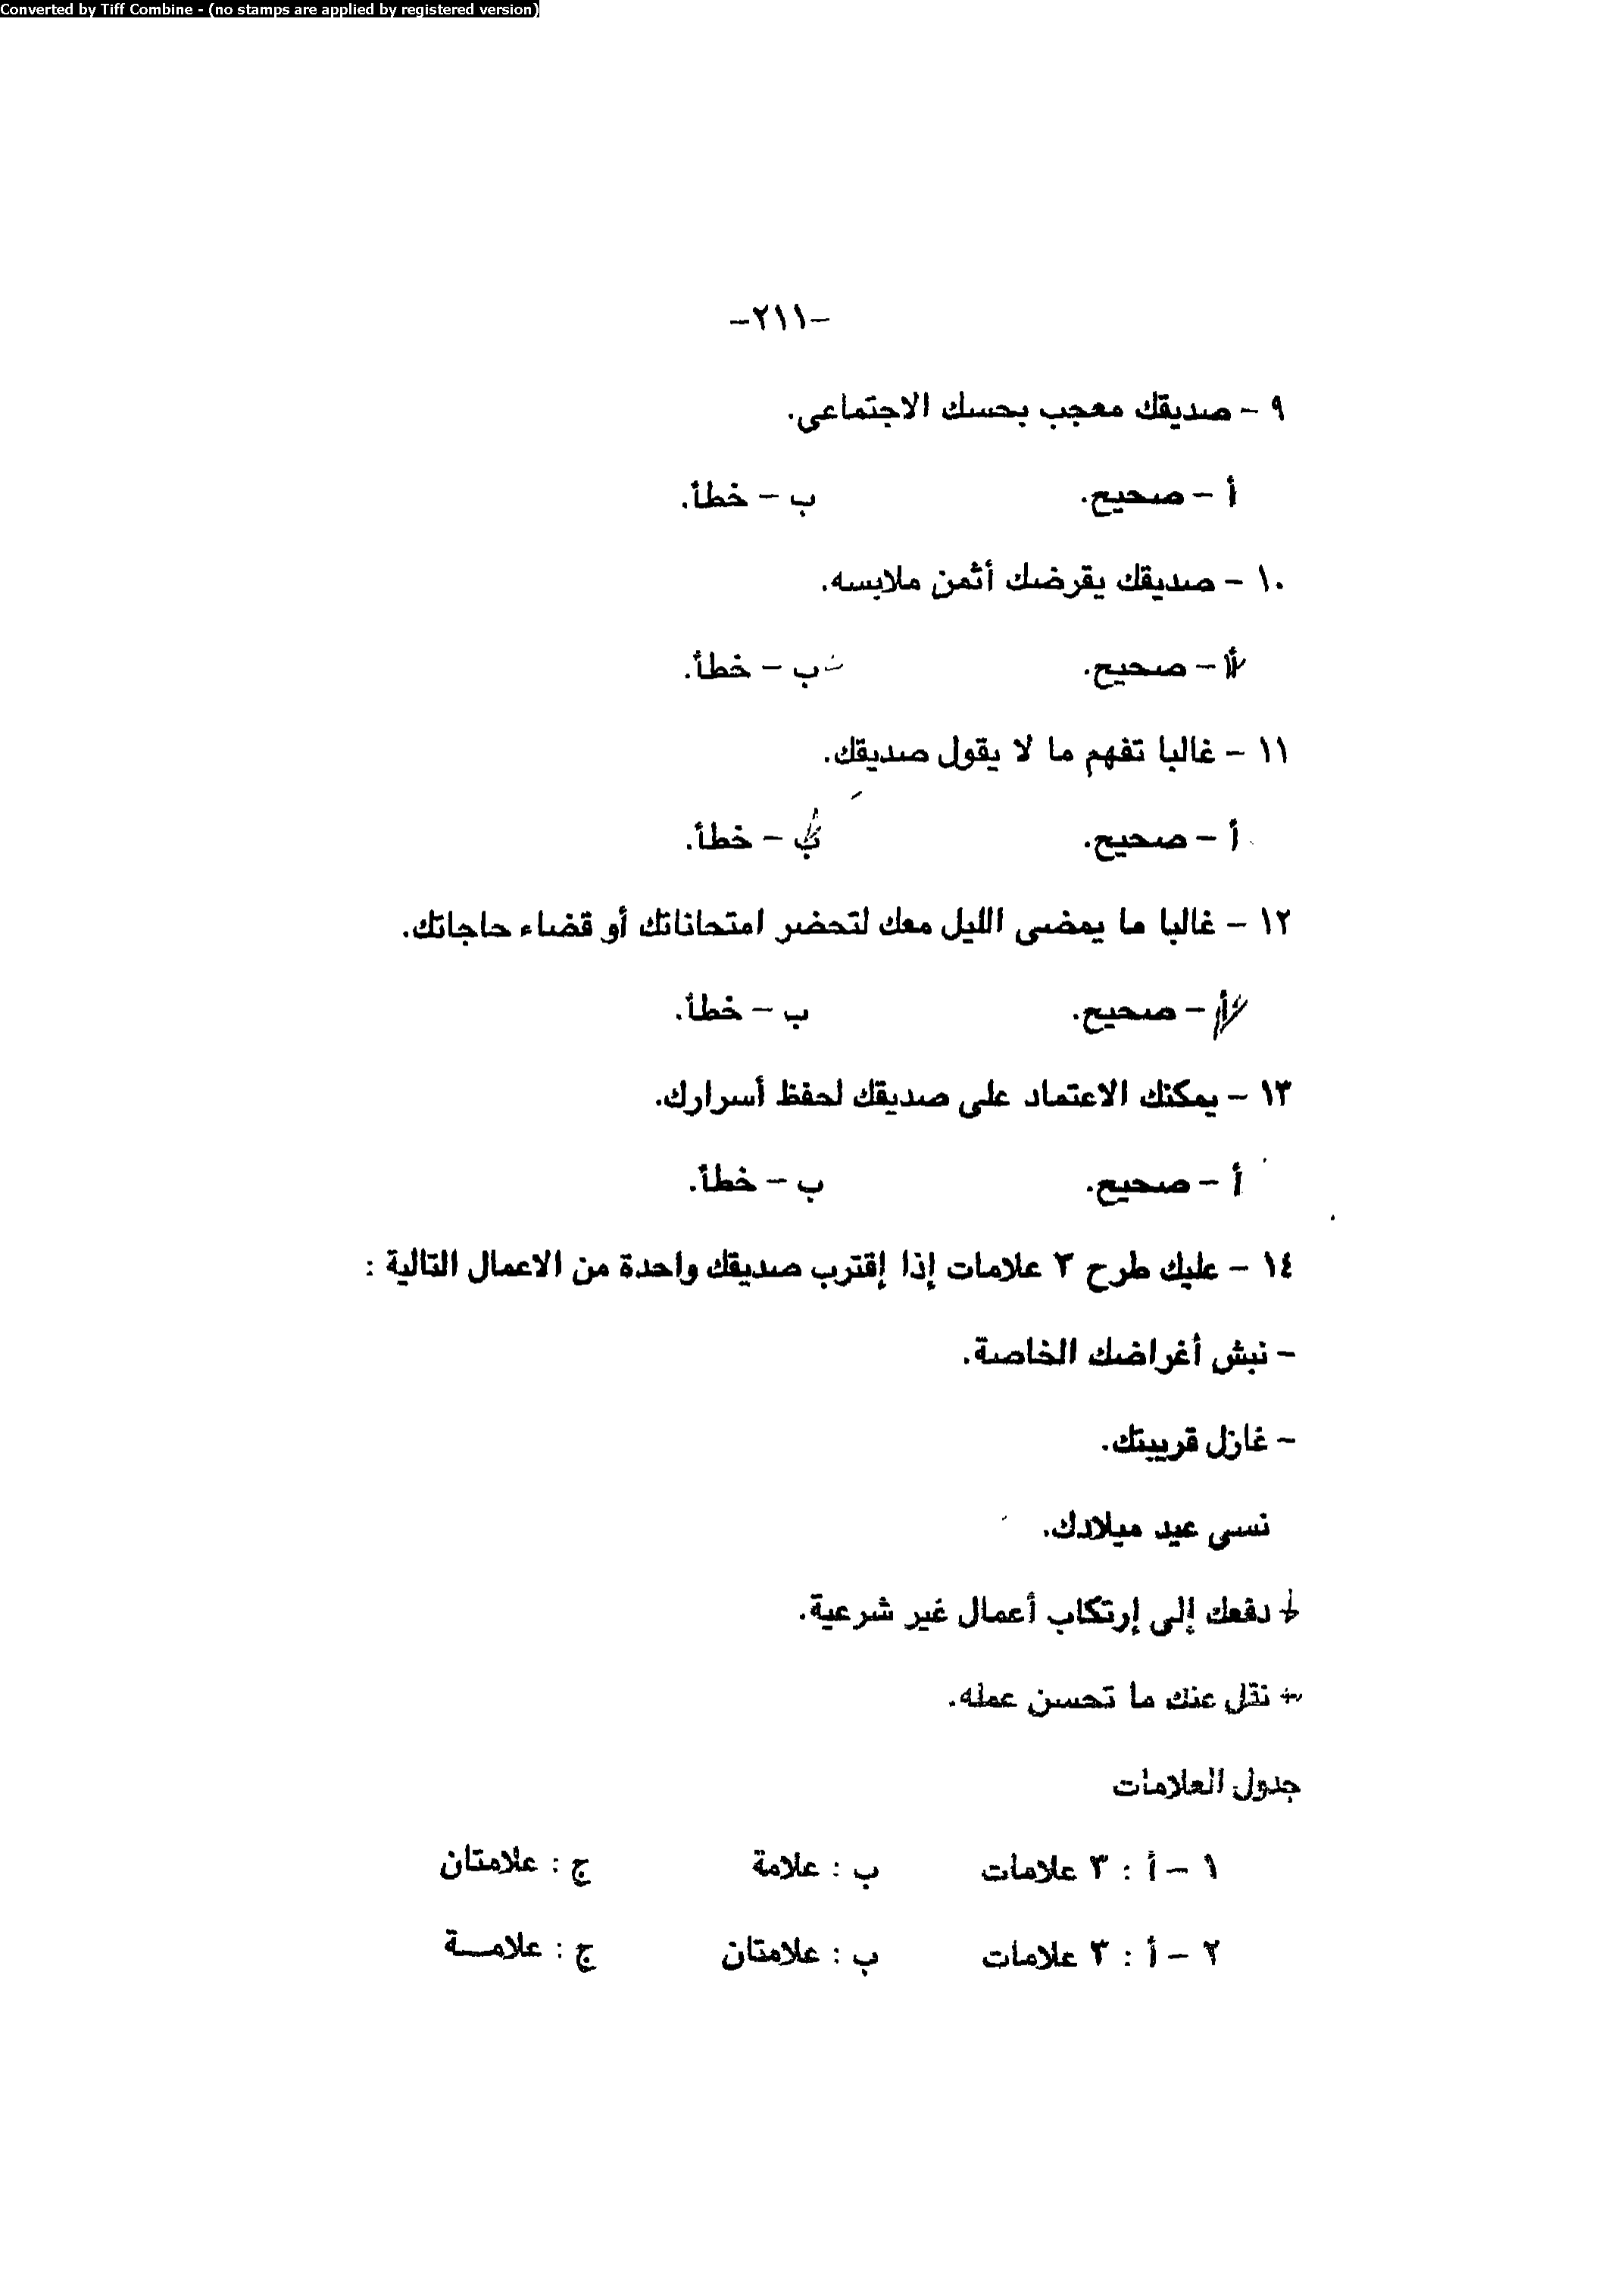 Converted by Tiff Combine - (no stamps are applied by registered version)
-٢١١-
٩ - صديقك معجب بحسك الاجتماعي.
أ - صحيح. ب - خطأ.
١٠ - صديقك يقرضك أثمن ملابسه.
أ - صحيح. ب - خطأ.
١١ - غالبا تفهم ما لا يقول صديقك.
أ - صحيح. ب - خطأ.
١٢ - غالبا ما يمضي الليل معك لتحضر امتحاناتك أو قضاء حاجاتك.
أ - صحيح. ب - خطأ.
١٣ - يمكنك الاعتماد على صديقك لحفظ أسرارك.
أ - صحيح. ب - خطأ.
١٤ - عليك طرح ٣ علامات إذا إقترب صديقك واحدة من الاعمال التالية :
- نبش أغراضك الخاصة.
- غازل قريبتك.
نسي عيد ميلادك.
- دفعك إلى إرتكاب أعمال غير شرعية.
- نقل عنك ما تحسن عمله.
جدول العلامات
١ - أ : ٣ علامات ب : علامة ج : علامتان
٢ - أ : ٣ علامات ب : علامتان ج : علامـــة